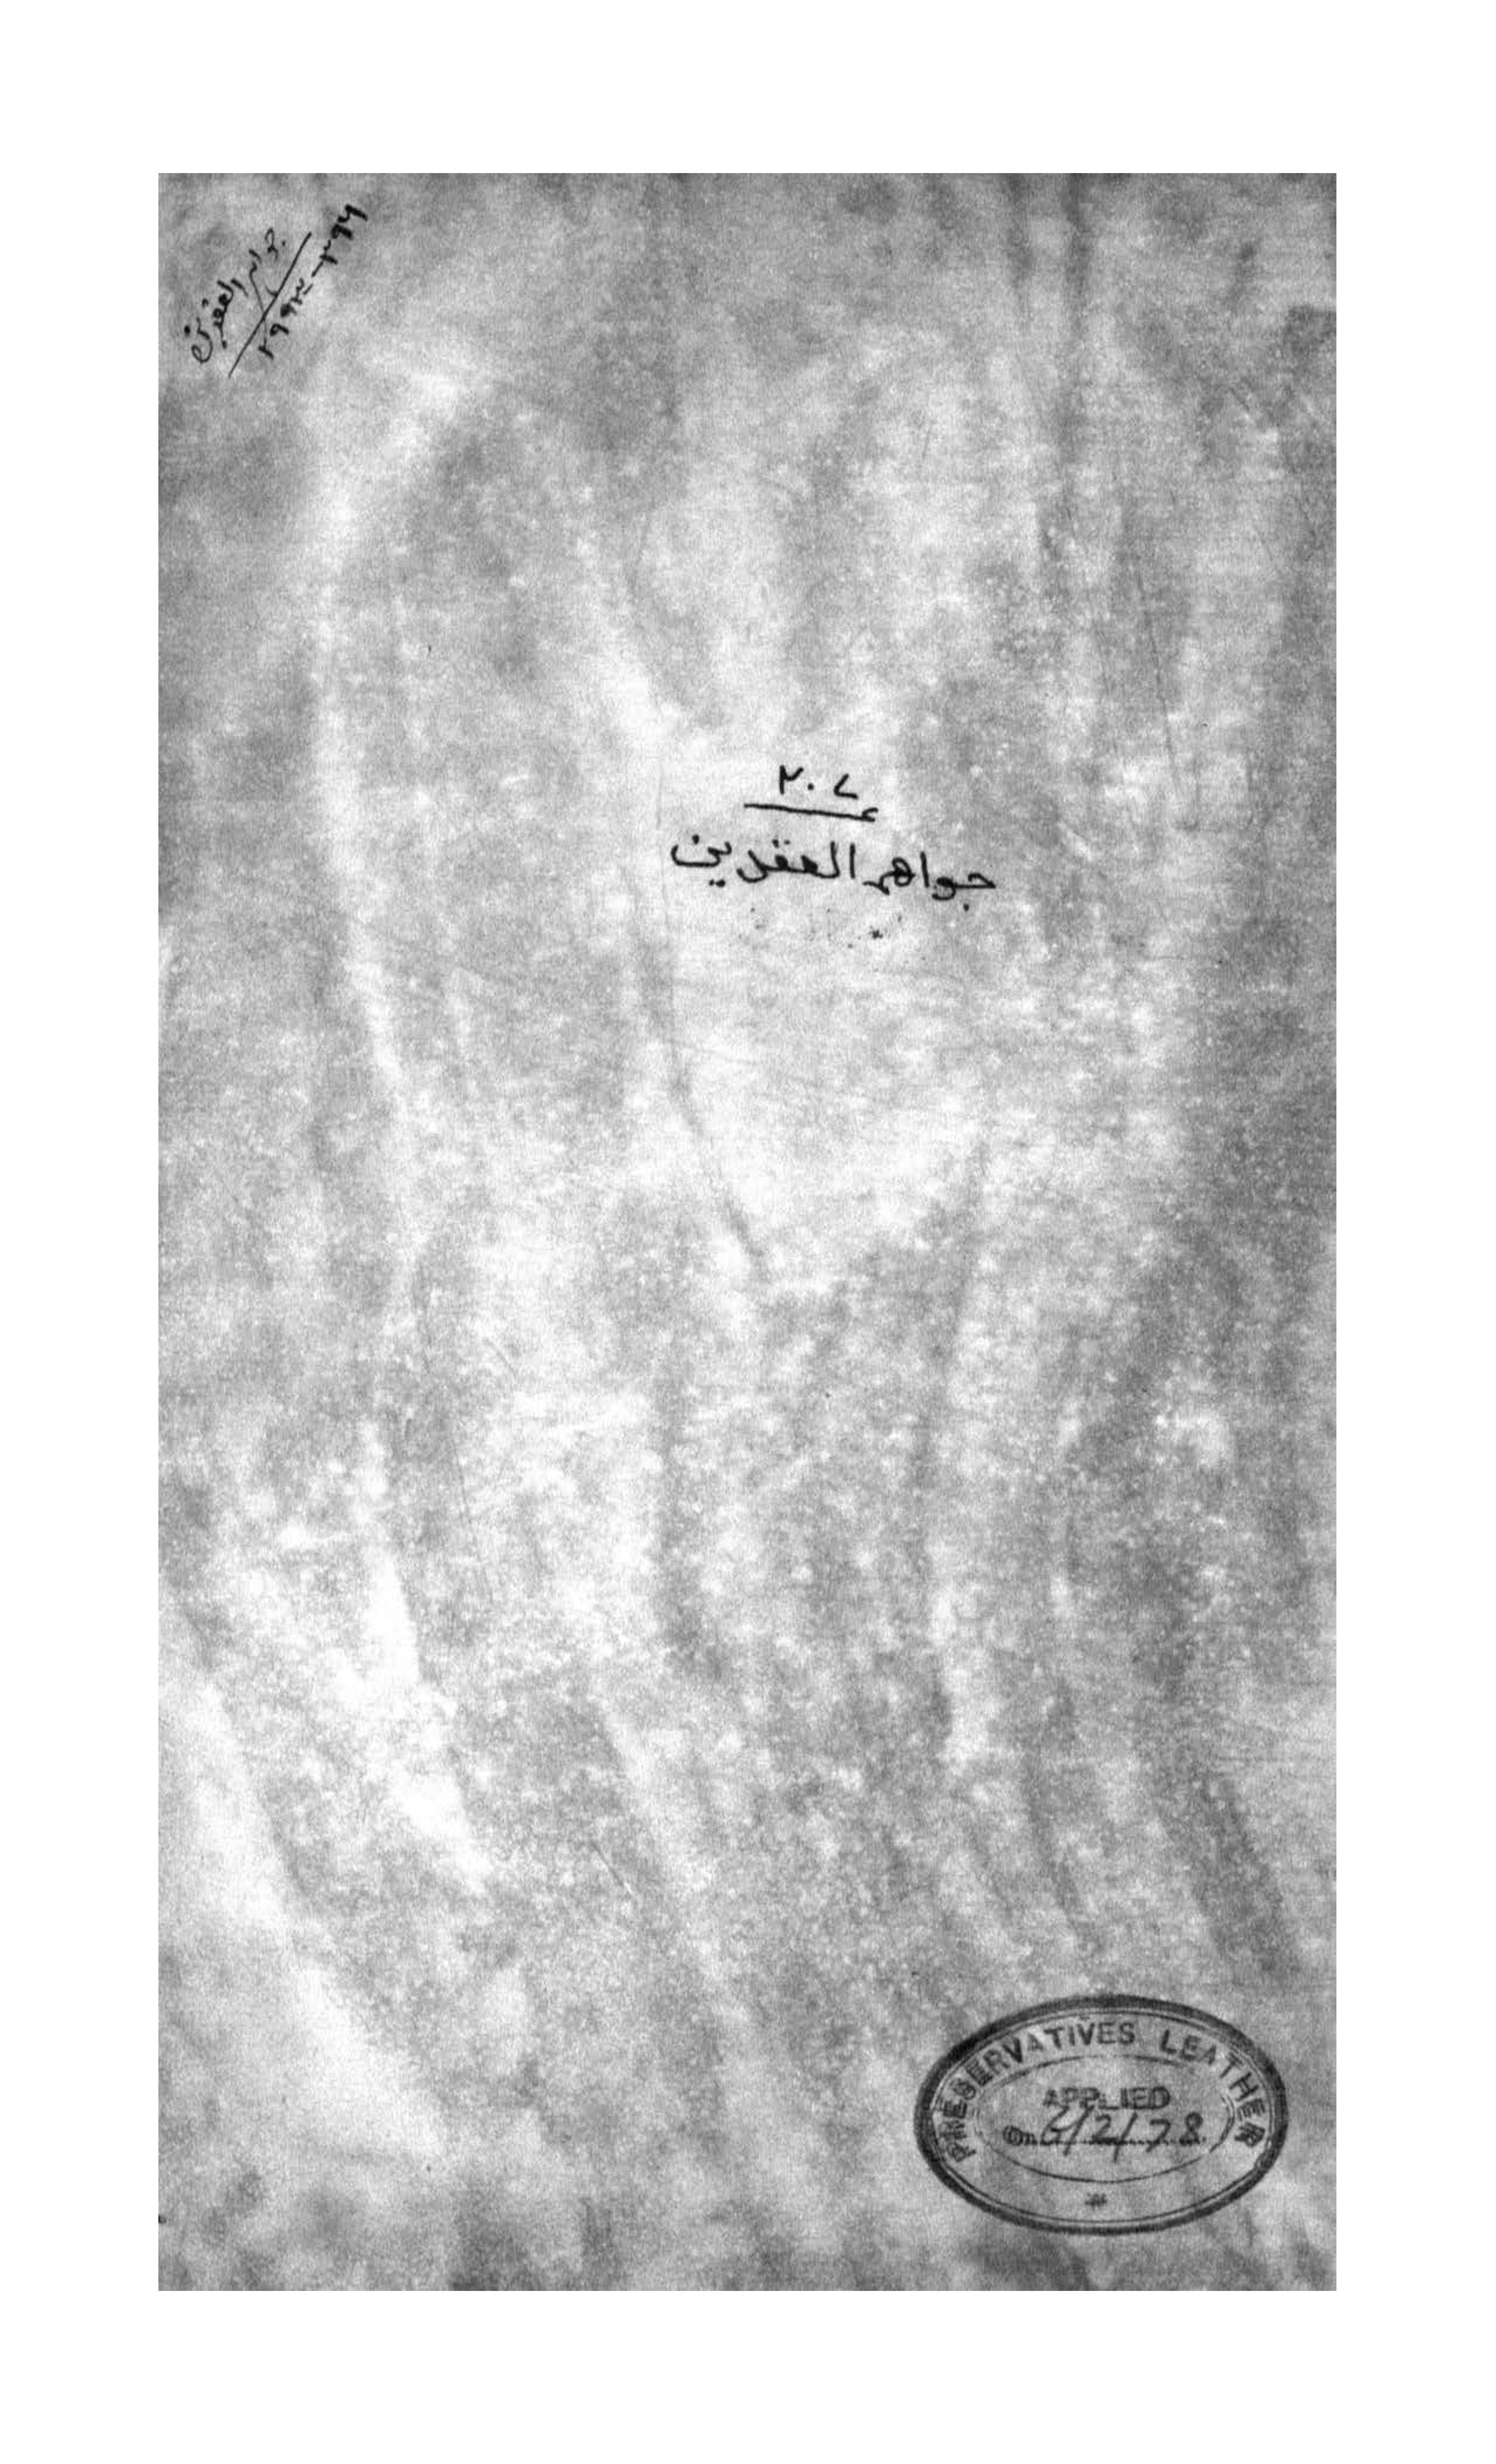 جواهر العقدین
٢٩٩٣-٣٩٦
٢٠٧
جواهر العقدین
PRESERVATIVES LEATHER
APPLIED
On 6/2/78
#